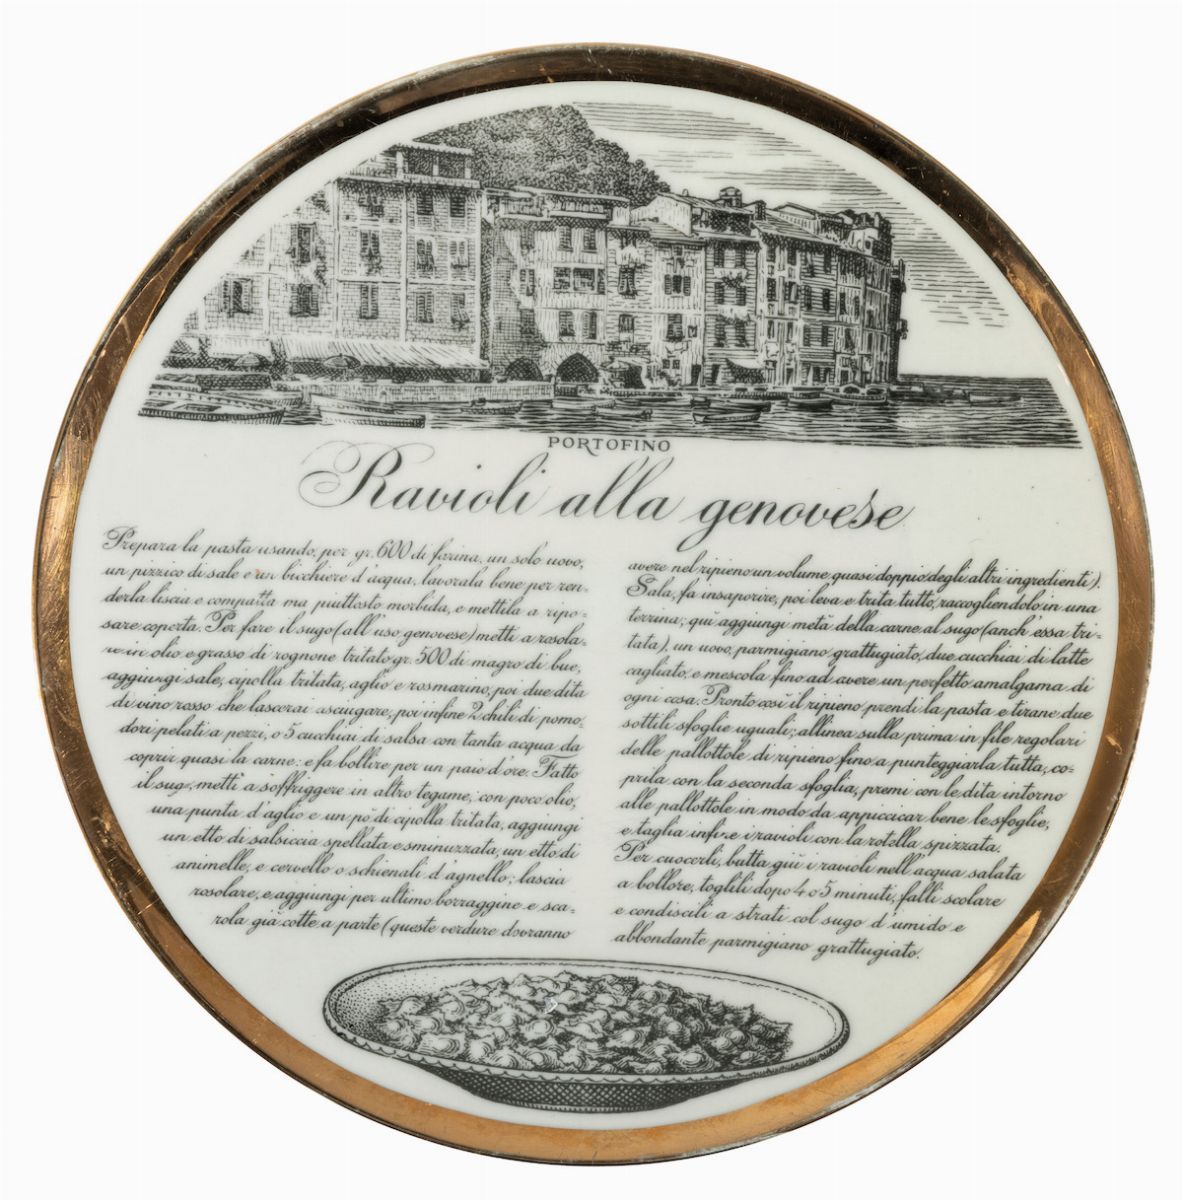 PORTOFINO
Ravioli alla genovese
Prepara la pasta usando, per gr. 600 di farina, un solo uovo,
un pizzico di sale e un bicchiere d'acqua, lavorala bene per ren-
derla liscia e compatta ma piuttosto morbida, e mettila a ripo-
sare coperta. Per fare il sugo (all'uso genovese) metti a rosola-
re in olio e grasso di rognone tritato gr. 500 di magro di bue,
aggiungi sale, cipolla tritata, aglio e rosmarino, poi due dita
di vino rosso che lascerai asciugare, poi infine 2 chili di pomo,
dori pelati a pezzi, o 5 cucchiai di salsa con tanta acqua da
coprir quasi la carne: e fa bollire per un paio d'ore. Fatto
il sugo, metti a soffriggere in altro tegame, con poco olio,
una punta d'aglio e un pò di cipolla tritata, aggiungi
un etto di salsiccia spellata e sminuzzata, un etto di
animelle, e cervello o schienali d'agnello; lascia
rosolare, e aggiungi per ultimo borraggine e sca-
rola già cotte a parte (queste verdure dovranno
avere nel ripieno un volume quasi doppio degli altri ingredienti).
Sala, fa insaporire, poi leva e trita tutto, raccogliendolo in una
terrina; qui aggiungi metà della carne al sugo (anch'essa tri-
tata), un uovo, parmigiano grattugiato, due cucchiai di latte
cagliato, e mescola fino ad avere un perfetto amalgama di
ogni cosa. Pronto così il ripieno prendi la pasta e tirane due
sottili sfoglie uguali; allinea sulla prima in file regolari
delle pallottole di ripieno fino a punteggiarla tutta, co-
prila con la seconda sfoglia, premi con le dita intorno
alle pallottole in modo da appiccicar bene le sfoglie,
e taglia infine i ravioli con la rotella spizzata.
Per cuocerli, butta giù i ravioli nell'acqua salata
a bollore, toglili dopo 4 o 5 minuti, falli scolare
e condiscili a strati col sugo d'umido e
abbondante parmigiano grattugiato.